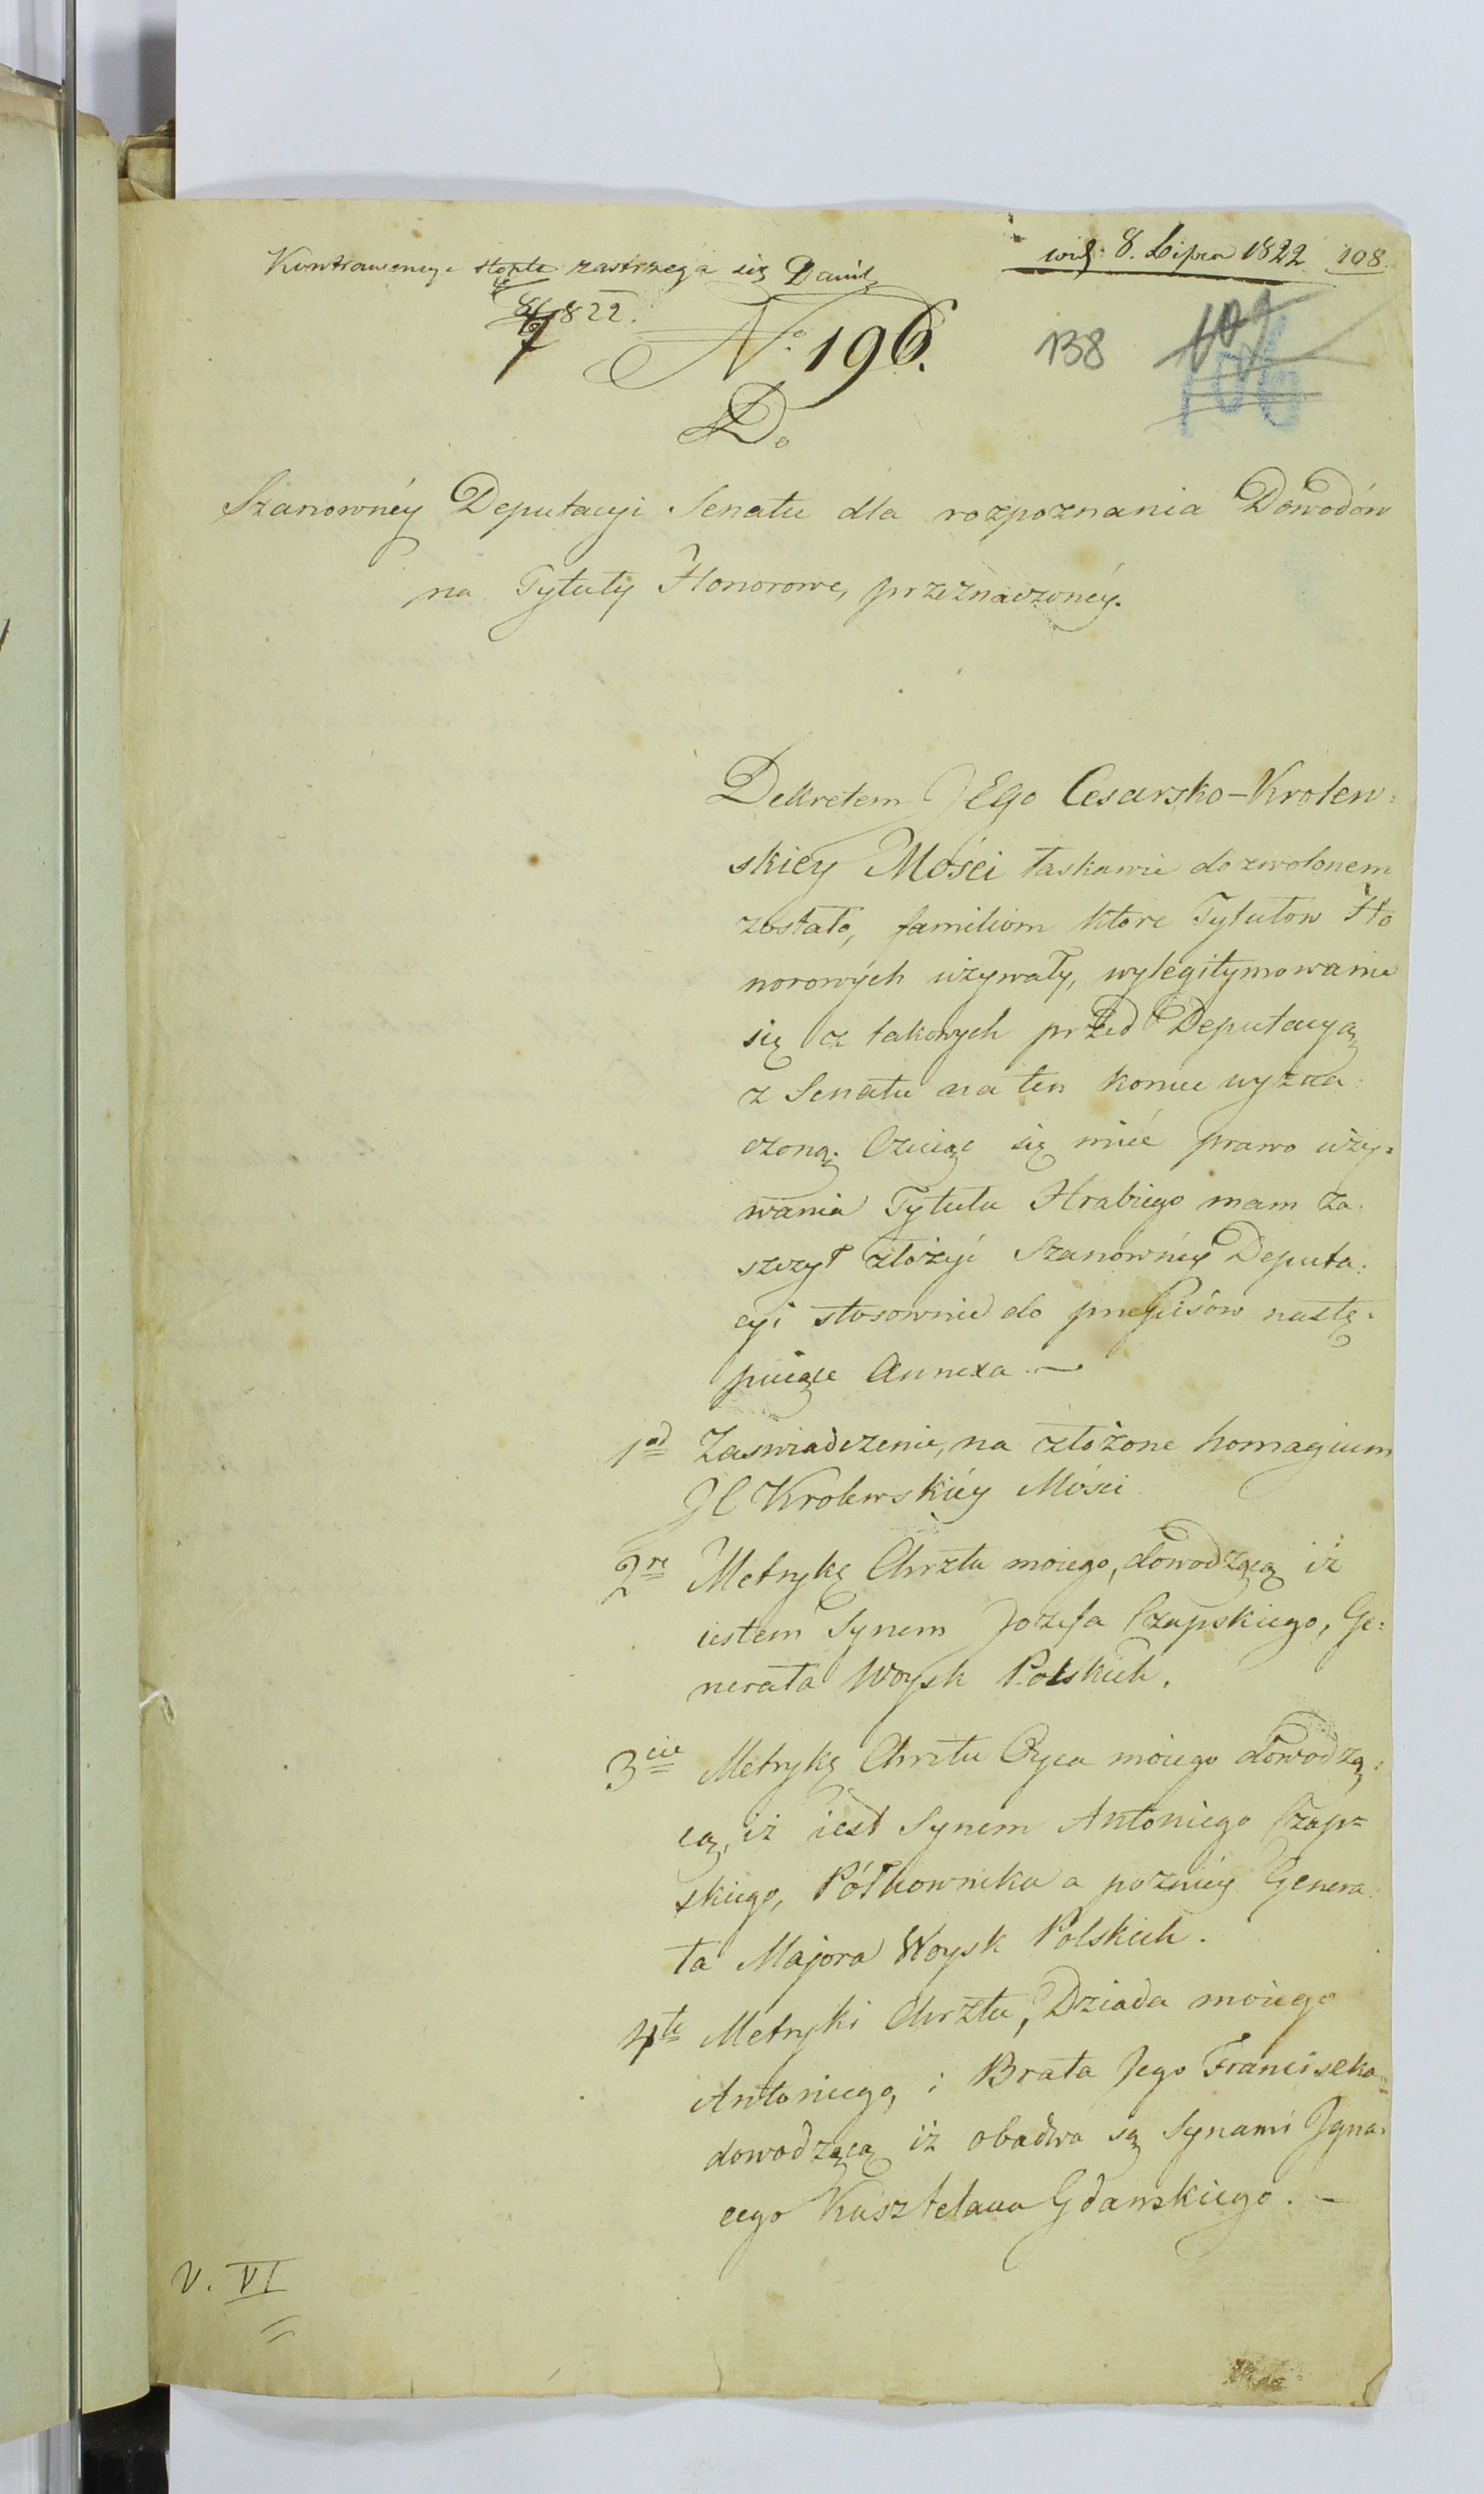 wid: 8. Lipca 1822 108.
Kontrawencya stępla zastrzega się
8/7 822.
No. 196. 138 109
106
Do
Szanownéy Deputacyi Senatu dla rozpoznania Dowodów
na Tytuły Honorowe, przeznaczonéy.
Dekretem JEgo Cesarsko-Krolew:
skiey Mości łaskawie dozwolonem
zostało, familiom które Tytułow Ho
norowych używały, wylegitymowanie
się z takowych przed Deputacyą
z Senatu na ten koniec wyzna:
czoną. Czuiąc się mieć prawo uży:
wania Tytułu Hrabiego mam za:
szczyt złożyć Szanownéy Deputa:
cyi stosownie do przepisów nastę:
puiące Annexa —
1od Zaswiadczenie, na złożone homagium
JC Krolewskiéy Mości
2re Metrykę Chrztu moiego, dowodzącą iż
iestem Synem Jozefa Czapskiego, Ge:
nerała Woysk Polskich.
3cie Metrykę Chrztu Oyca moiego dowodzą:
cą, iż iest Synem Antoniego Czap=
skiego, Półkownika a pozniey Genera
ła Majora Woysk Polskich.
4te Metryki Chrztu, Dziada moiego
Antoniego, i Brata Jego Franciszka=
dowodzącą iż obadwa są Synami Igna:
cego Kasztelana Gdanskiego. —
V. VI